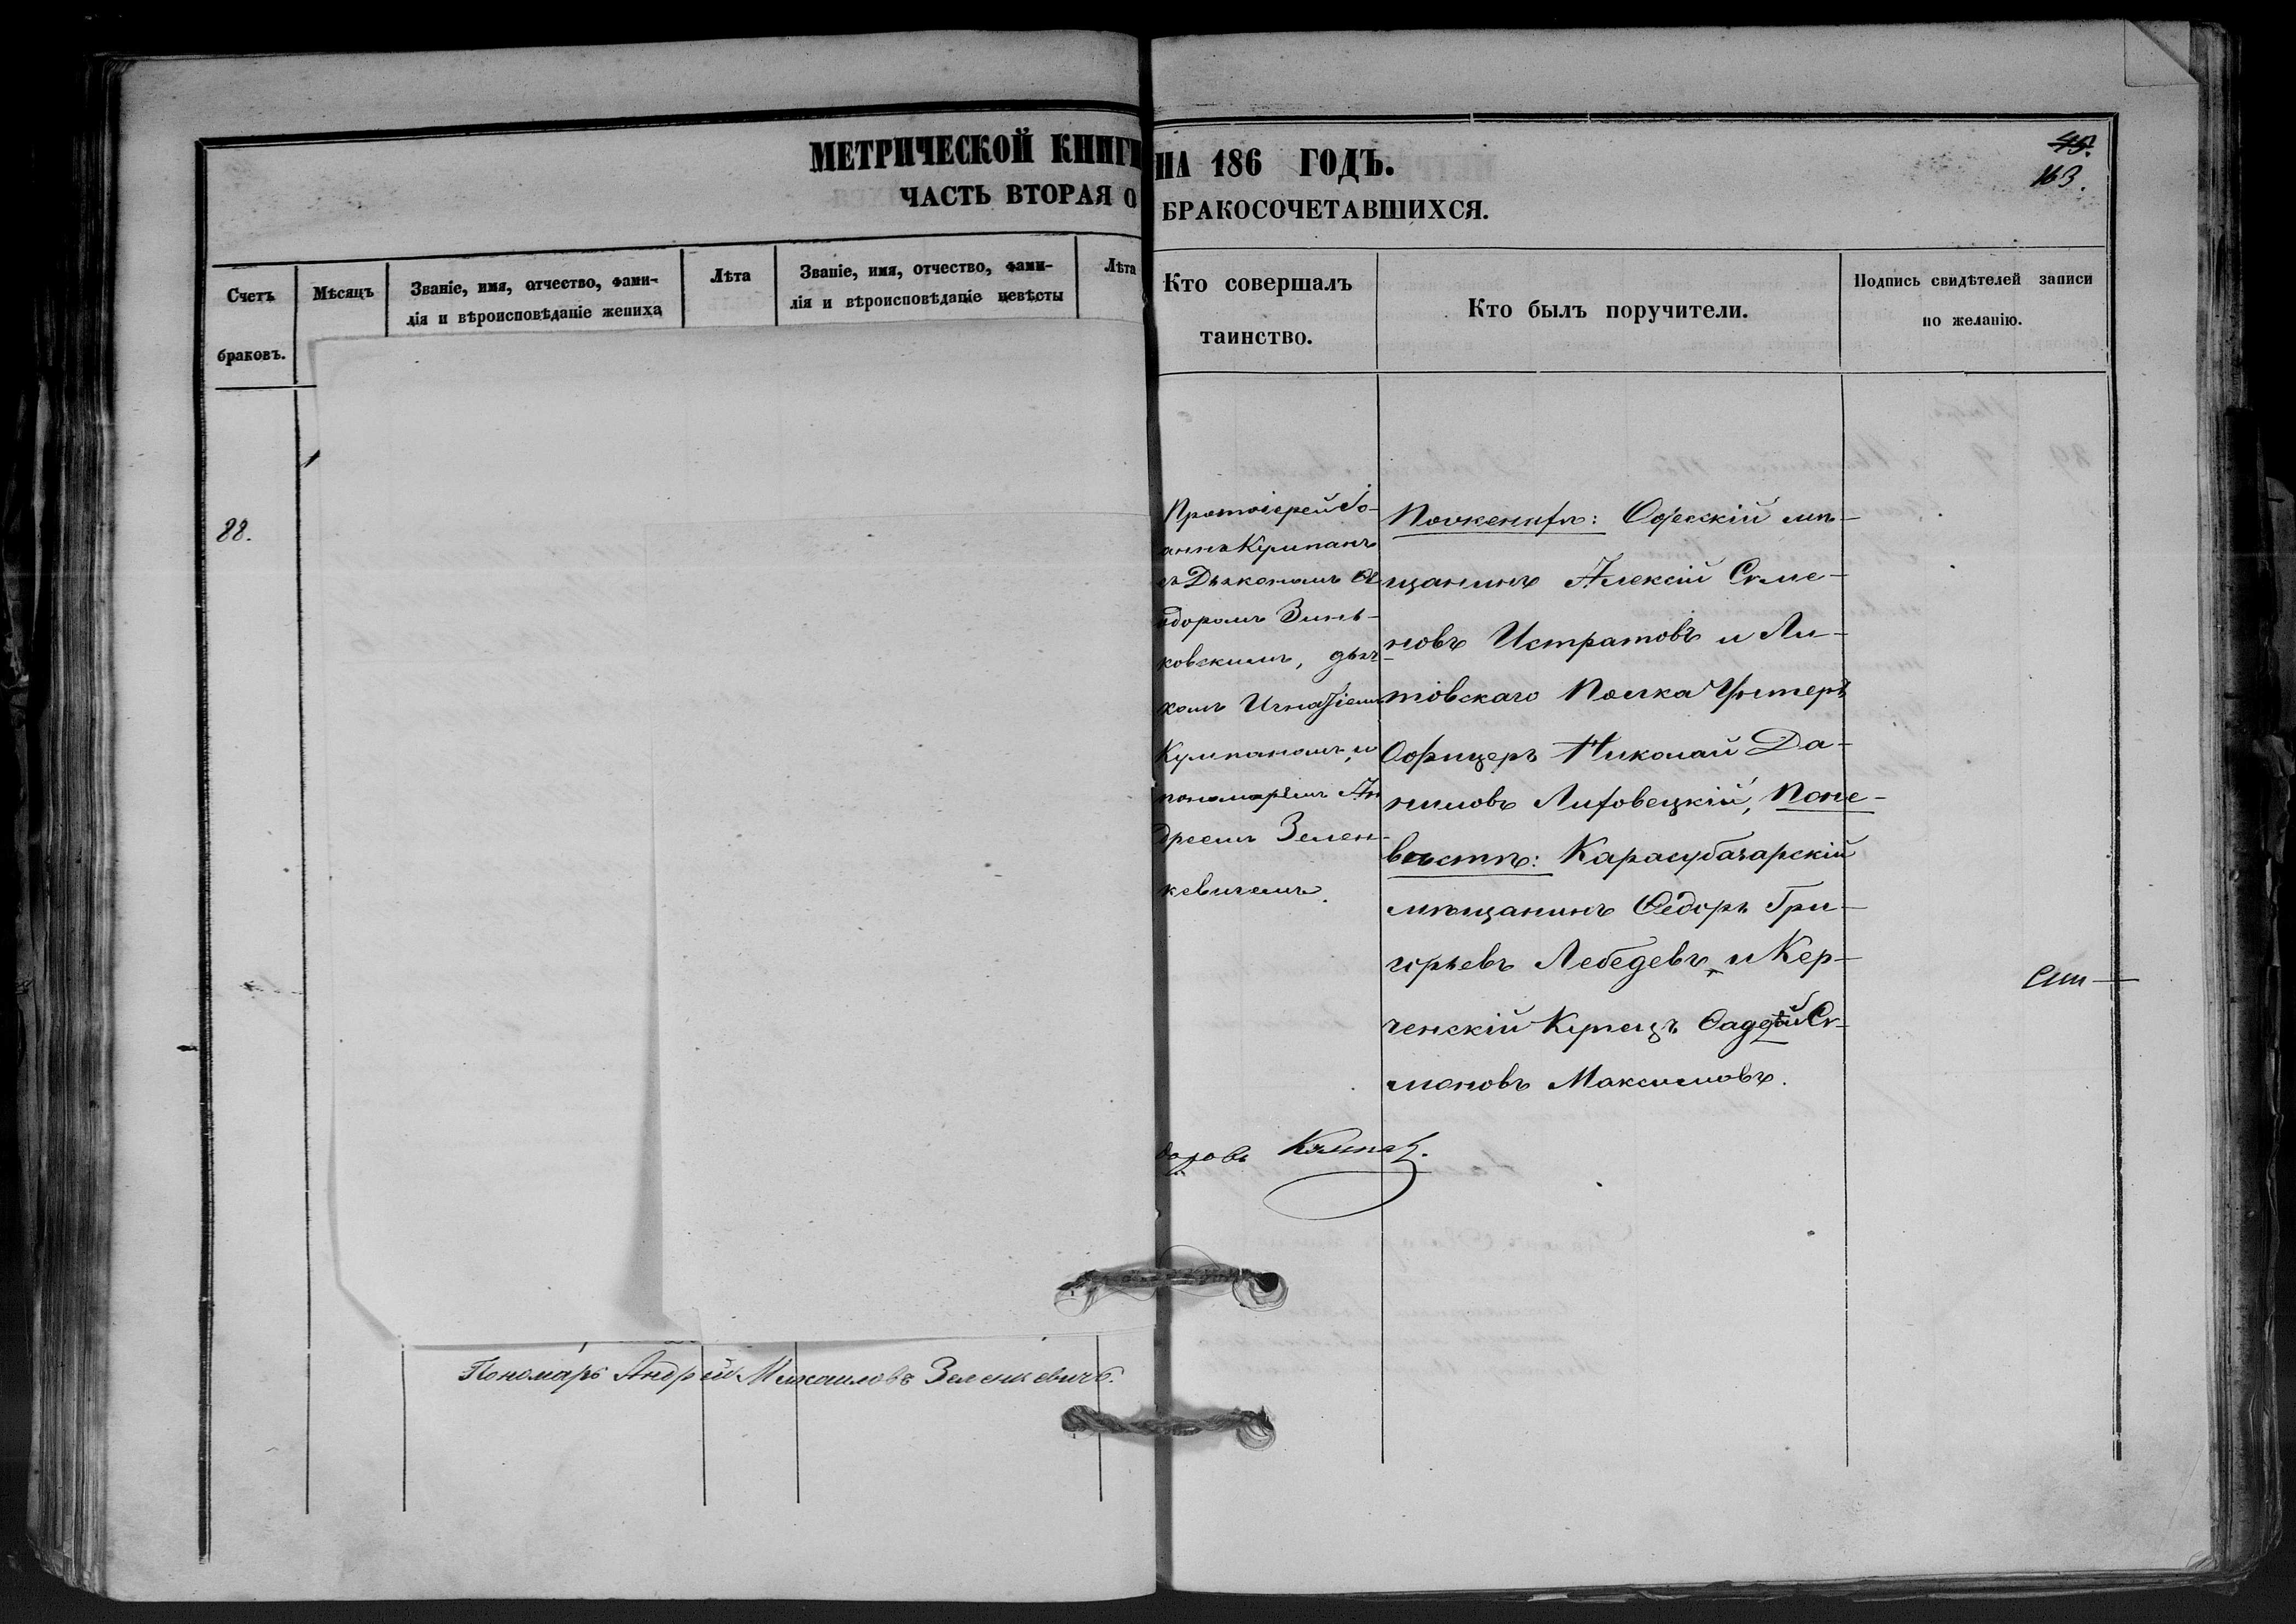 МЕТРИЧЕСКОЙ КНИГИ НА 186 ГОДЪ.
ЧАСТЬ ВТОРАЯ О БРАКОСОЧЕТАВШИХСЯ.
163.
Счетъ
браковъ.
Мѣсяцъ
Званіе, имя, отчество, фами-
лія и вѣроисповѣданіе жениха
Лѣта
Званіе, имя, отчество, фами-
лія и вѣроисповѣданіе невѣсты
Лѣта
Кто совершалъ
таинство.
Кто былъ поручители.
Подпись свидѣтелей записи
по желанію.
88.
Протоіерей Іо-
аннъ Кумпанъ
съ Дьякономъ Ѳе
одоромъ Зинь-
ковскимъ, дьяч
комъ Игнатіемъ
Кумпаномъ, и
пономаремъ Ан
дреемъ Зелен-
кевичемъ.
По женихѣ: Одесскій мѣ-
щанинъ Алексій Семе-
новъ Истратовъ и Ли-
товскаго Полка Унтеръ
Офицеръ Николай Да-
ниловъ Литовецкій, По не-
вѣстѣ: Карасубазарскій
мѣщанинъ Ѳедоръ Гри-
горьевъ Лебедевъ, и Кер-
ченскій Купецъ Ѳадѣй Се-
меновъ Максимовъ.
Пономарь Андрей Михаиловъ Зеленкевичъ.